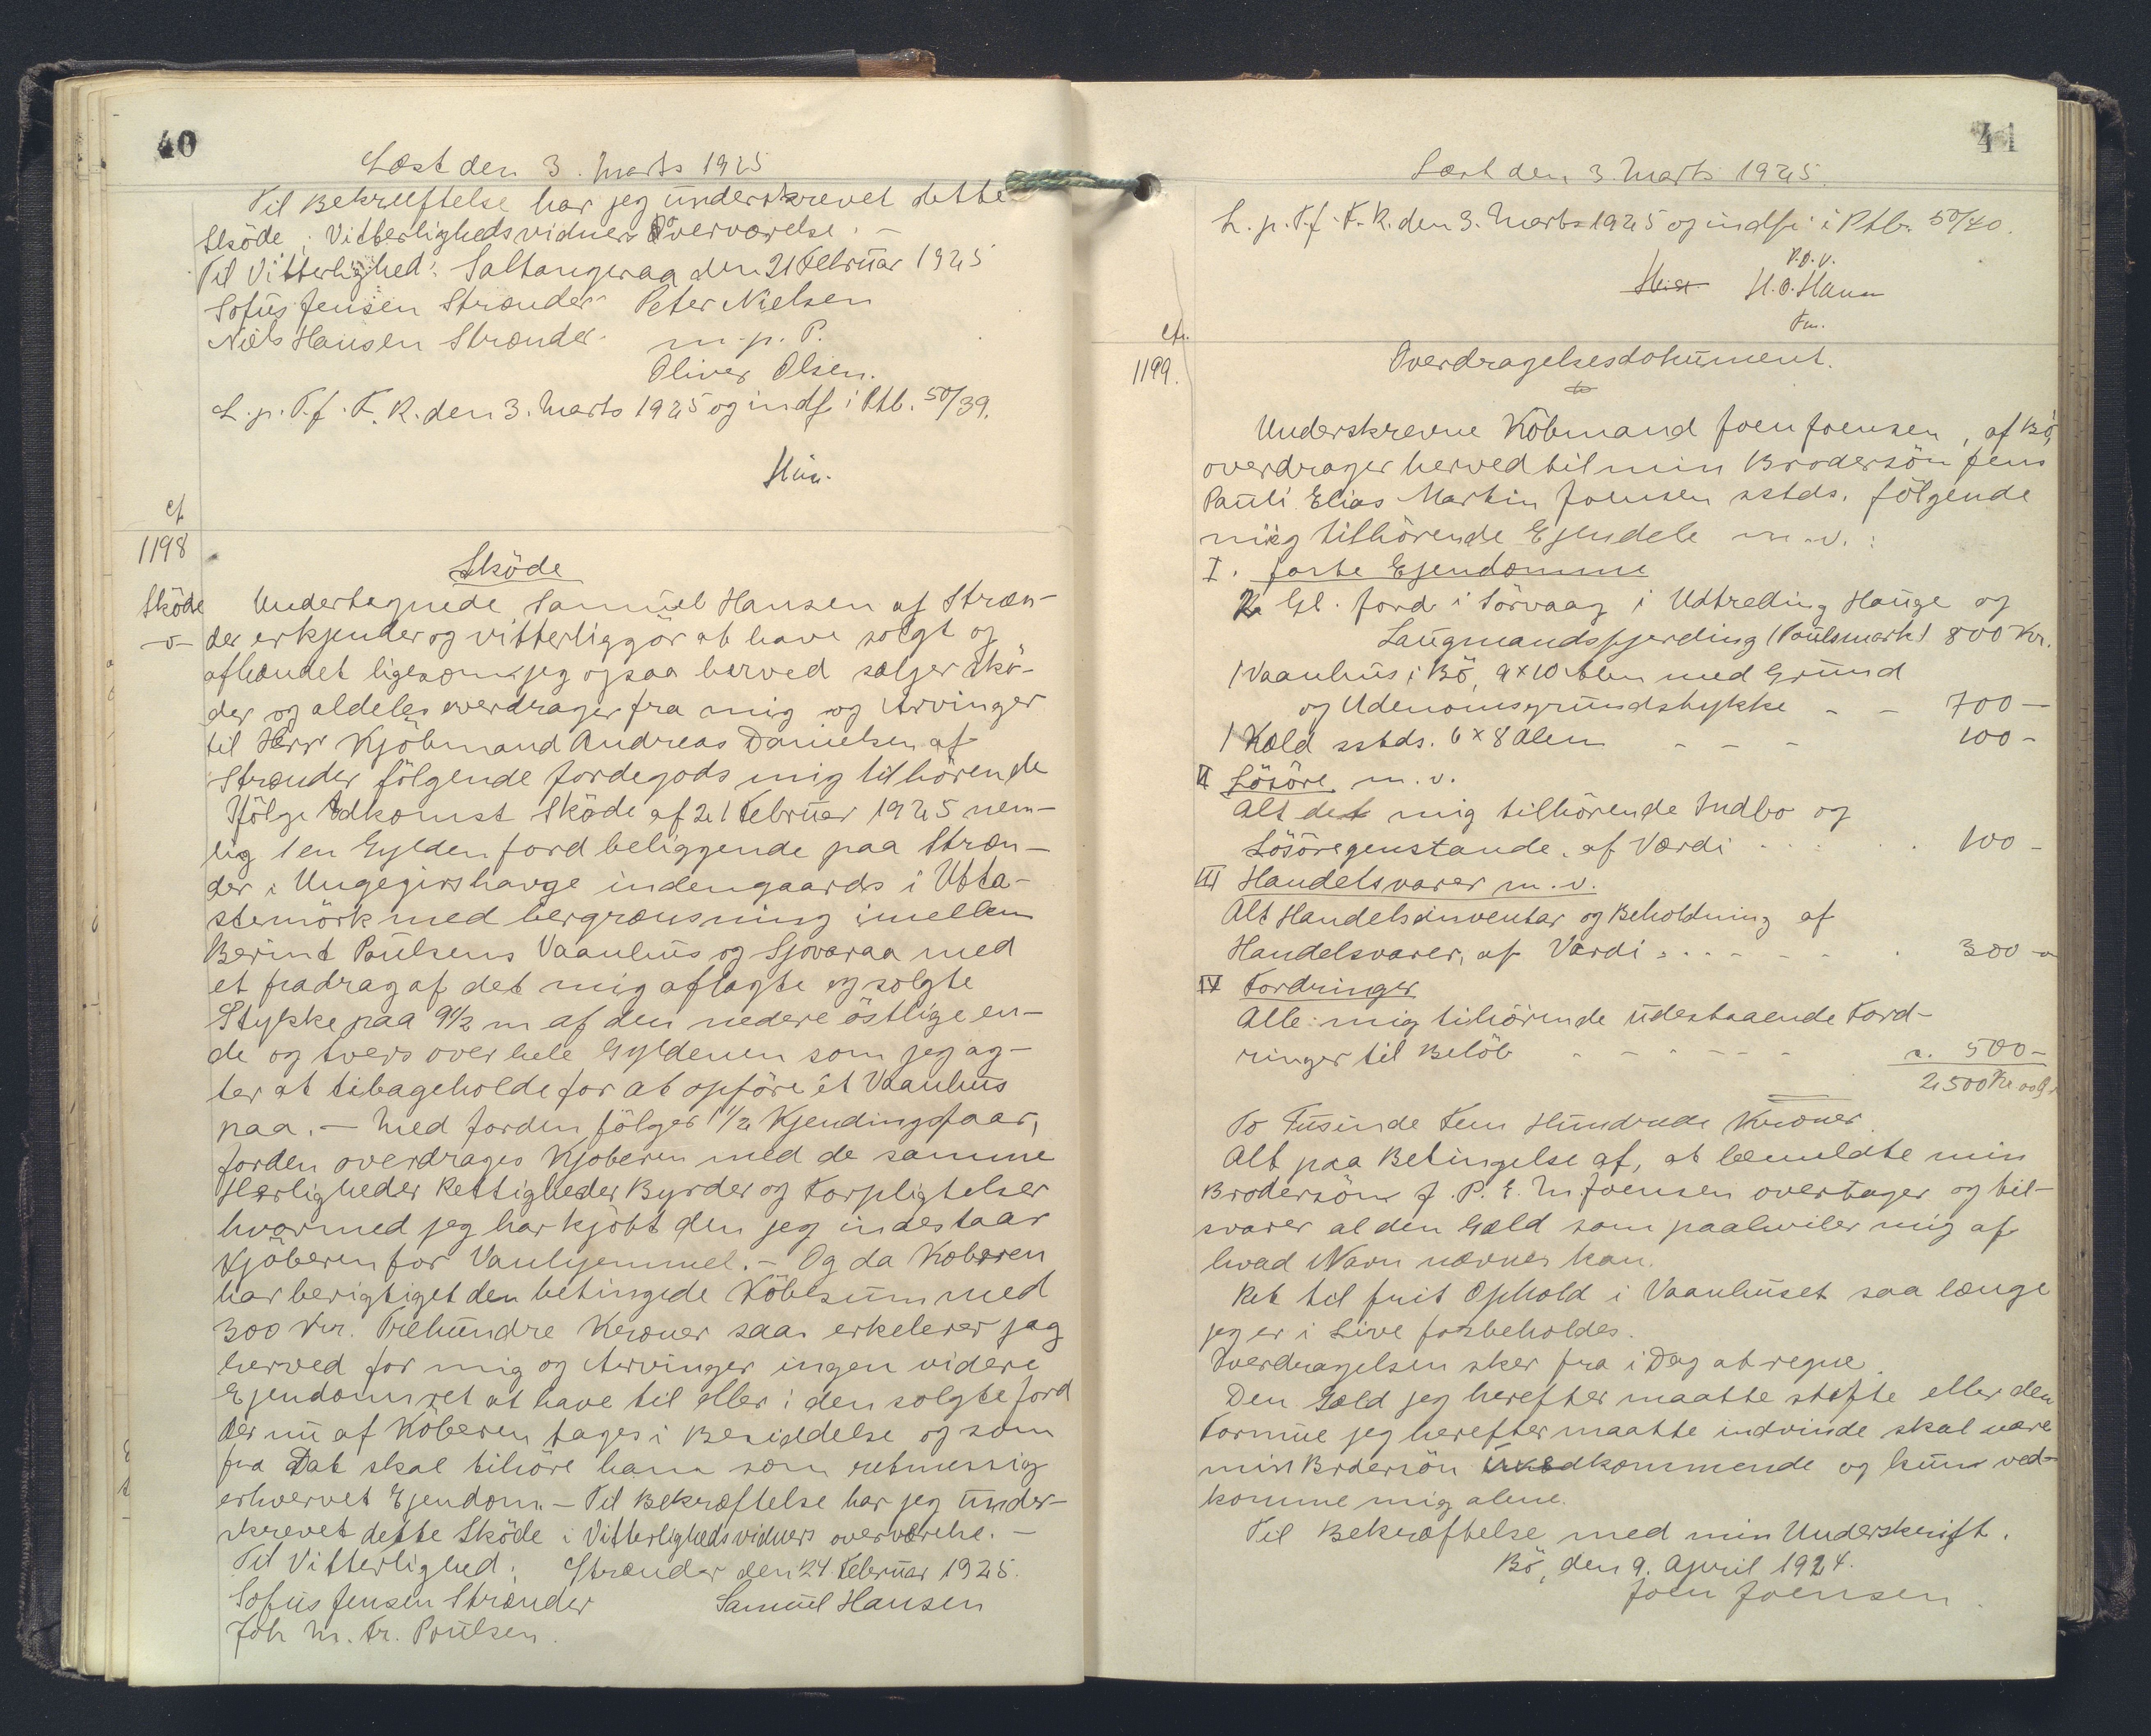 40
Læst den 3. Marts 1925
Til Bekræftelse har jeg underskrevet dette
Sköde i Vitterlighedsvidners Overværelse. –
Til Vitterlighed: Saltangeraa den 21 Februar 1925
Sofus Jensen Strænder Peter Nielsen
Niels Hansen Strænder m. p. P.
Oliver Olsen.
L. p. T. f. F. R. den 3. Marts 1925 og indf. i Ptb. 50/39.
cf
1198
Sköde
Sköde
-o-
Undertegnede Samuel Hansen af Stræn-
der erkjender og vitterliggör at have solgt og
afhændet ligesom jeg ogsaa herved sælger skö-
der og aldeles overdrager fra mig og Arvinger
til Herr Kjöbmand Andreas Danielsen af
Strænder fölgende Jordegods mig tilhörende
Ifölge Adkomst Sköde af 21 Februar 1925 nem-
lig 1 en Gylden Jord beliggende paa Stræn-
der i Ungegirshavge indengaards i Utta-
stemörk med bergrænsning imellem
Berint Poulsens Vaanhus og Sjovaraa med
et fradrag af det mig aflagte og solgte
Stykke paa 9½ m af den nedere östlige en-
de og tvers over hele Gyldenen som jeg ag-
ter at tibageholde for at opföre et Vaanhus
paa. – Med Jorden fölger 1½ Kjendingsfaar,
Jorden overdrages Kjöberen med de samme
Herligheder Rettigheder Byrder og Forpligtelser
hvormed jeg har kjöbt den jeg indestaar
Kjöberen for Vanhjemmel. – Og da Köberen
har berigtiget den betingede Köbesum med
300 Kr. Trehundre Kroner saa erkelerer jeg
herved for mig og Arvinger ingen videre
Ejendomsret at have til eller i den solgte Jord
der nu af Köberen tages i Besiddelse og som
fra Dat skal tihöre ham som retmessig
erhvervet Ejendom. – Til Bekræftelse har jeg under-
skrevet dette Sköde i Vitterlighedsvidners overværelse. –
Til Vitterlighed: Strænder den 24 Februar 1925.
Sofus Jensen Strænder Samuel Hansen
Joh M. Fr. Poulsen.
41
Læst den 3. Marts 1925.
L. p. T. f. F. R. den 3. Marts 1925 og indf. i Ptb. 50/40.
P. D. V.
H. O. Hann
Fm.
cfr.
1199.
Overdragelsesdokument.
Underskrevne Köbmand Joen Joensen, af Bö,
overdrager herved til min Brodersön Jens
Pauli Elias Martin Joensen sstds. fölgende
mig tilhörende Ejendele m.v.:
I. faste Ejendomme
2 Gl. Jord i Sörvaag i Udtreding Hauge og
Laugmandsfjerding (Poulsmark) 800 Kr.
1 Vaanhus i Bö, 9 x 10 Alen med Grund
og Udenomsgrundstykke - - 700 –
1 Kæld sstds. 6 x 8 Alen - - - 100 –
II Lösöre m.v.
Alt det mig tilhörende Indbo og
Lösöregenstande, af Værdi . . . . 100 –
III Handelsvarer m.v.
Alt Handelsinventar og Beholdning af
Handelsvarer, af Værdi . . . - - - . 300 –
IV Fordringer
Alle mig tihörende udestaaende Ford-
ringer til Belöb - - - - - - 500 –
2500 Kr
To Tusinde Fem Hundrede Kroner
Alt paa Betingelse af, at bemeldte min
Brodersön J. P. E. M. Joensen overtager og til-
svarer al den Gæld som paahviler mig af
hvad Navn nævnes kan.
Ret til frit Ophold i Vaanhuset saa længe
jeg er i Live forbeholdes.
Overdragelsen sker fra i Dag at regne.
Den Gæld jeg herefter maatte stifte eller den
Formue jeg herefter maatte indvinde skal være
min Brdersön Uvedkommende og kun ved-
komme mig alene.
Til Bekræftelse med min Underskrift.
Bö, den 9. April 1924.
Joen Joensen.